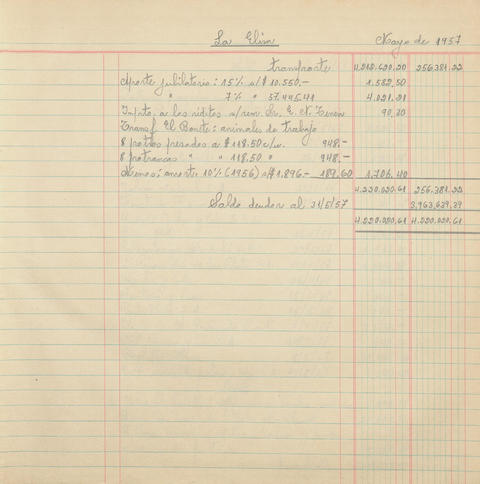 La Elisa Mayo de 1957
Transporte 4.212.620.20 256.381.22
Aporte jubilatorio: 15% s/$ 10.550.- 1.582.50
" 7% " 57.445.41 4.021.21
Impto. a los réditos s/rem. Sr. E. N. 90.20
Transf. El Bonete: animales de trabajo
8 potros pesados a $ 118.50 c/u. 948.-
8 potrancas " " 118.50 " 948.-
Menos: amort. 10% (1956) s/$ 1.896.- 189.60 1.706.40
4.220.020.61 256.381.22
Saldo deudor al 31/5/57 3.963.639.39
4.220.020.61 4.220.020.61